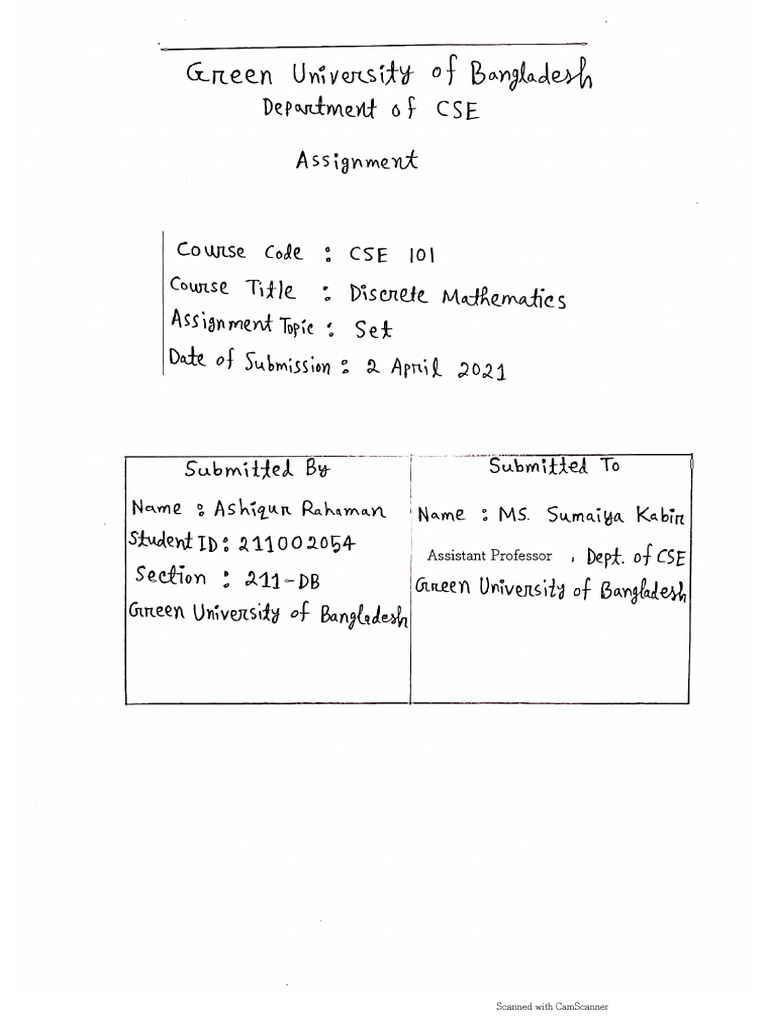 Green University of Bangladesh
Department of CSE
Assignment
Course Code : CSE 101
Course Title : Discrete Mathematics
Assignment Topic : Set
Date of Submission : 2 April 2021
Submitted By
Name : Ashiqur Rahaman
Student ID : 211002054
Section : 211-DB
Green University of Bangladesh
Submitted To
Name : MS. Sumaiya Kabir
Assistant Professor , Dept. of CSE
Green University of Bangladesh
Scanned with CamScanner